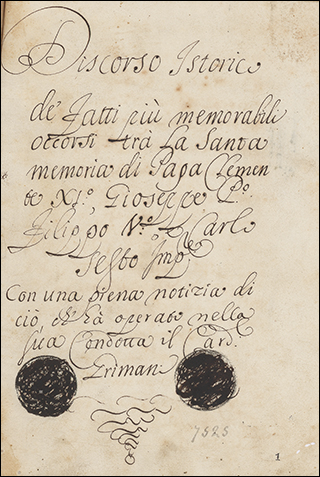 Discorso Istorico
de' Fatti più memorabili
occorsi trà La Santa
memoria di Papa Clemen
te XI.º, Gioseppe P.º
Filippo V.º e Carlo
Sesto Imp.
Con una piena notizia di
ciò, ch'hà operato nella
sua Condotta il Card.
Grimani
7525
1